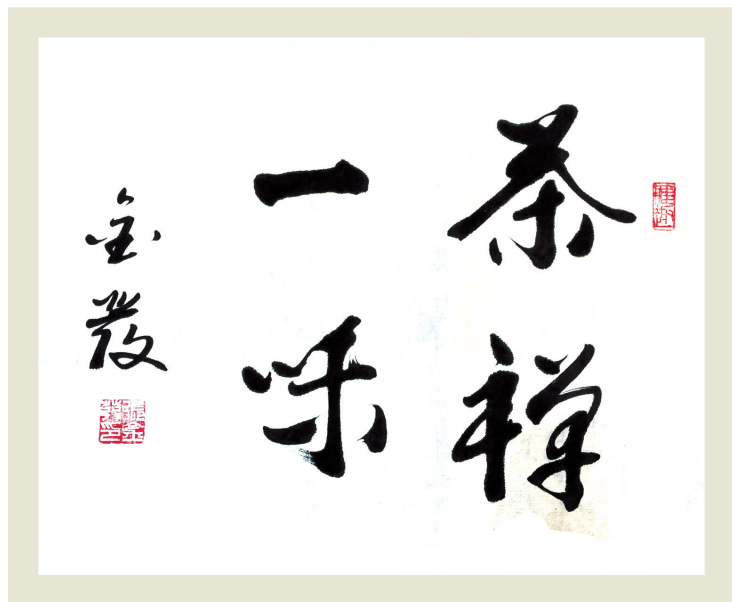 茶禅
一味
金發